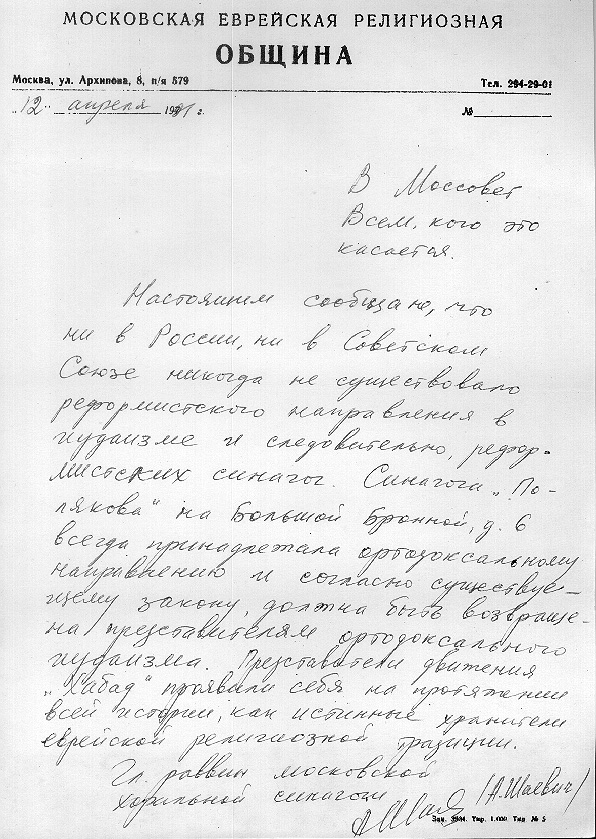 МОСКОВСКАЯ ЕВРЕЙСКАЯ РЕЛИГИОЗНАЯ
ОБЩИНА
Москва, ул. Архипова, 8, п/я 579 Тел. 294-29-01
„12“ апреля 1991 г. №
В Моссовет
Всем, кого это
касается.
Настоящим сообщаю, что
ни в России, ни в Советском
Союзе никогда не существовало
реформистского направления в
иудаизме и следовательно, рефор-
мистских синагог. Синагога „По-
лякова“ на Большой Бронной, д. 6
всегда принадлежала ортодоксальному
направлению и согласно существую-
щему закону, должна быть возвраще-
на представителям ортодоксального
иудаизма. Представители движения
„Хабад“ проявили себя на протяжении
всей истории, как истинные хранители
еврейской религиозной традиции.
Гл. раввин московской
хоральной синагоги (А. Шаевич)
Зак. 3984. Тир. 1.000 Тип № 5